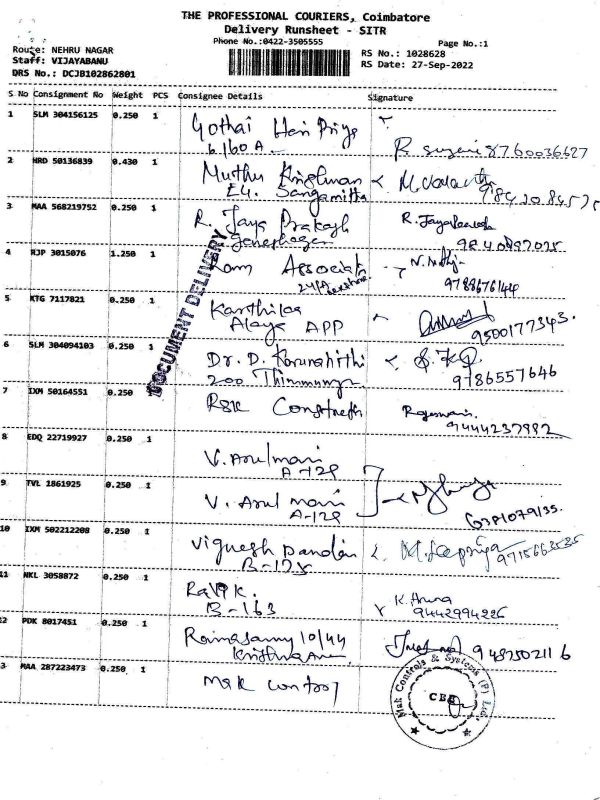 THE PROFESSIONAL COURIERS, Coimbatore
Delivery Runsheet - SITR
Phone No.:0422-3505555
Page No.:1
Route: NEHRU NAGAR
RS No.: 1028628
Staff: VIJAYABANU
RS Date: 27-Sep-2022
DRS No.: DCJB102862801
S No Consignment No Weight PCS Consignee Details Signature
1 SLM 304156125 0.250 1 Gothai Hari Priya
6/60A R. 8760036627
2 HRD 50136839 0.430 1 Muthu Krishnan
E4. Sangamitha
3 MAA 568219752 0.250 1 R. Jaya Prakash R. Jayaprakash
4 RJP 3015076 1.250 1 Ram Associat
9788676144
DOCUMENT DELIVERY
5 KTG 7117821 0.250 1 Karthikas
Alaya APP 9500177343.
6 SLM 304094103 0.250 1 Dr. D. Karunanithi
200 9786557646
7 IXM 50164551 0.250 RSK Rajeswari.
9444237982
8 EDQ 22719927 0.250 1 V. Arulmani
A-129
9 TVL 1861925 0.250 1 V. Arul mani
A-129 6381079135.
10 IXM 502212208 0.250 1 Vignesh pandian
B-125 9715663535
11 NKL 3058872 0.250 1 Ravi K. K. Aruna
B-163 9442994226
12 PDK 8017451 0.250 1 Ramasamy 10/44
9487502116
13 MAA 287223473 0.250 1 Mak control
Mak Controls & Systems (P) Ltd.
CBE